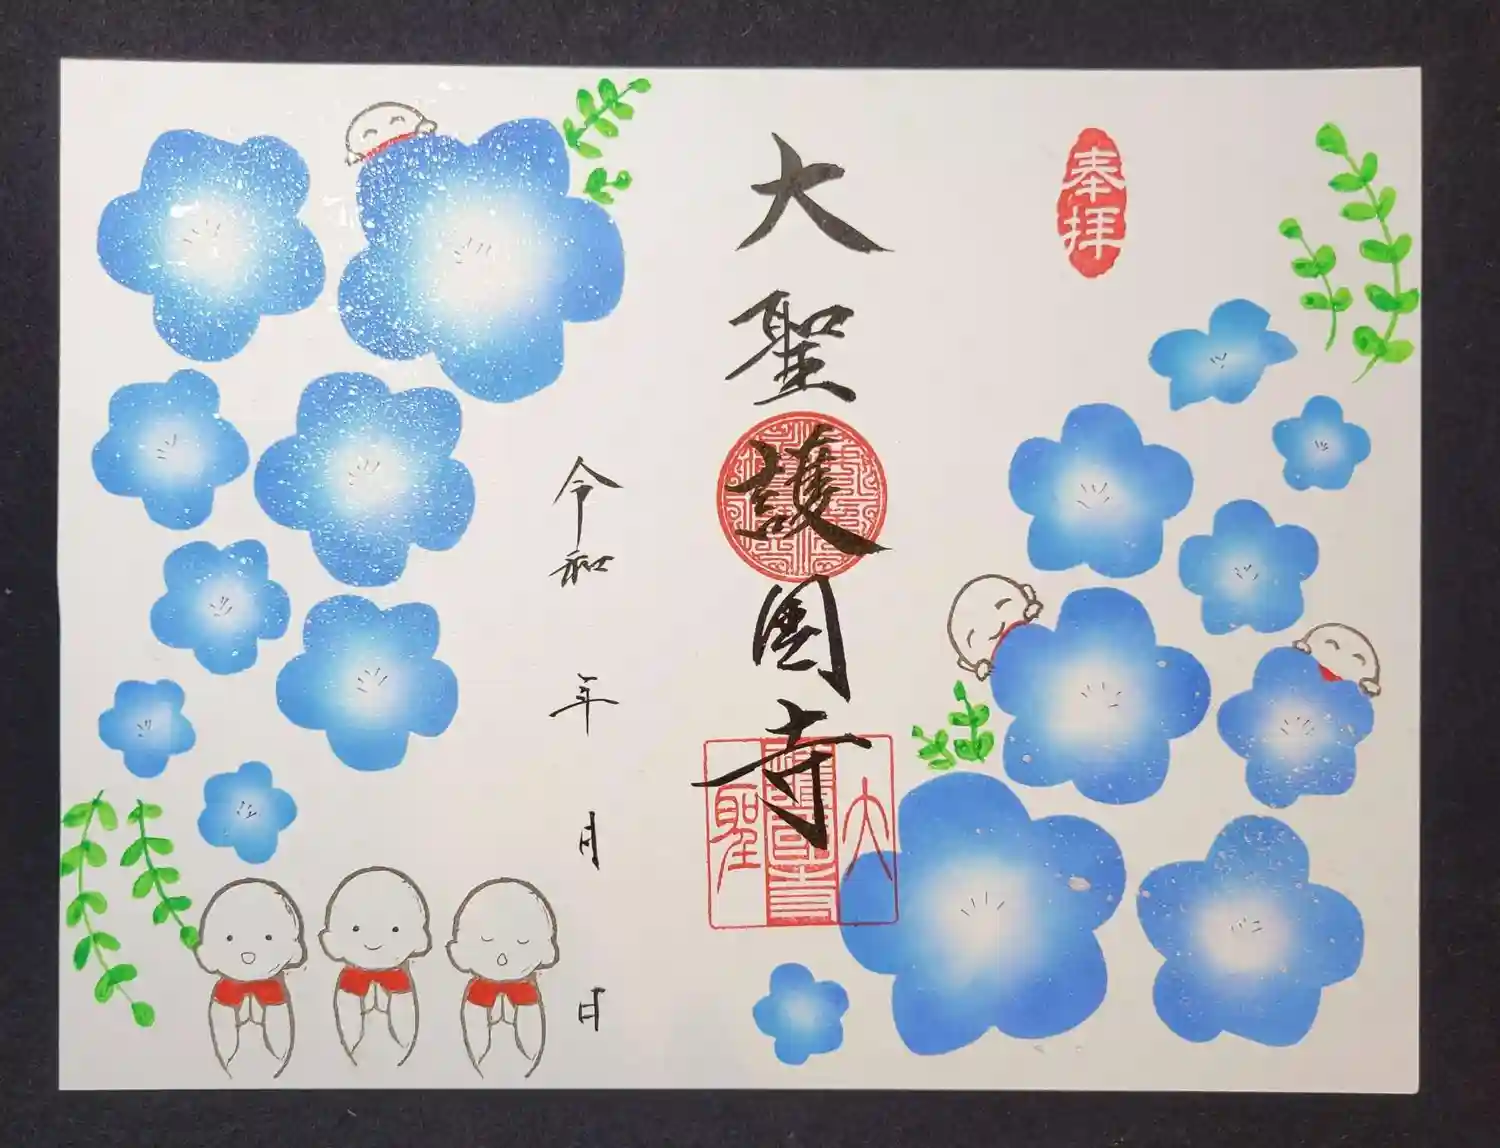 奉拝
大聖護国寺
大聖護國寺
令和 年 月 日